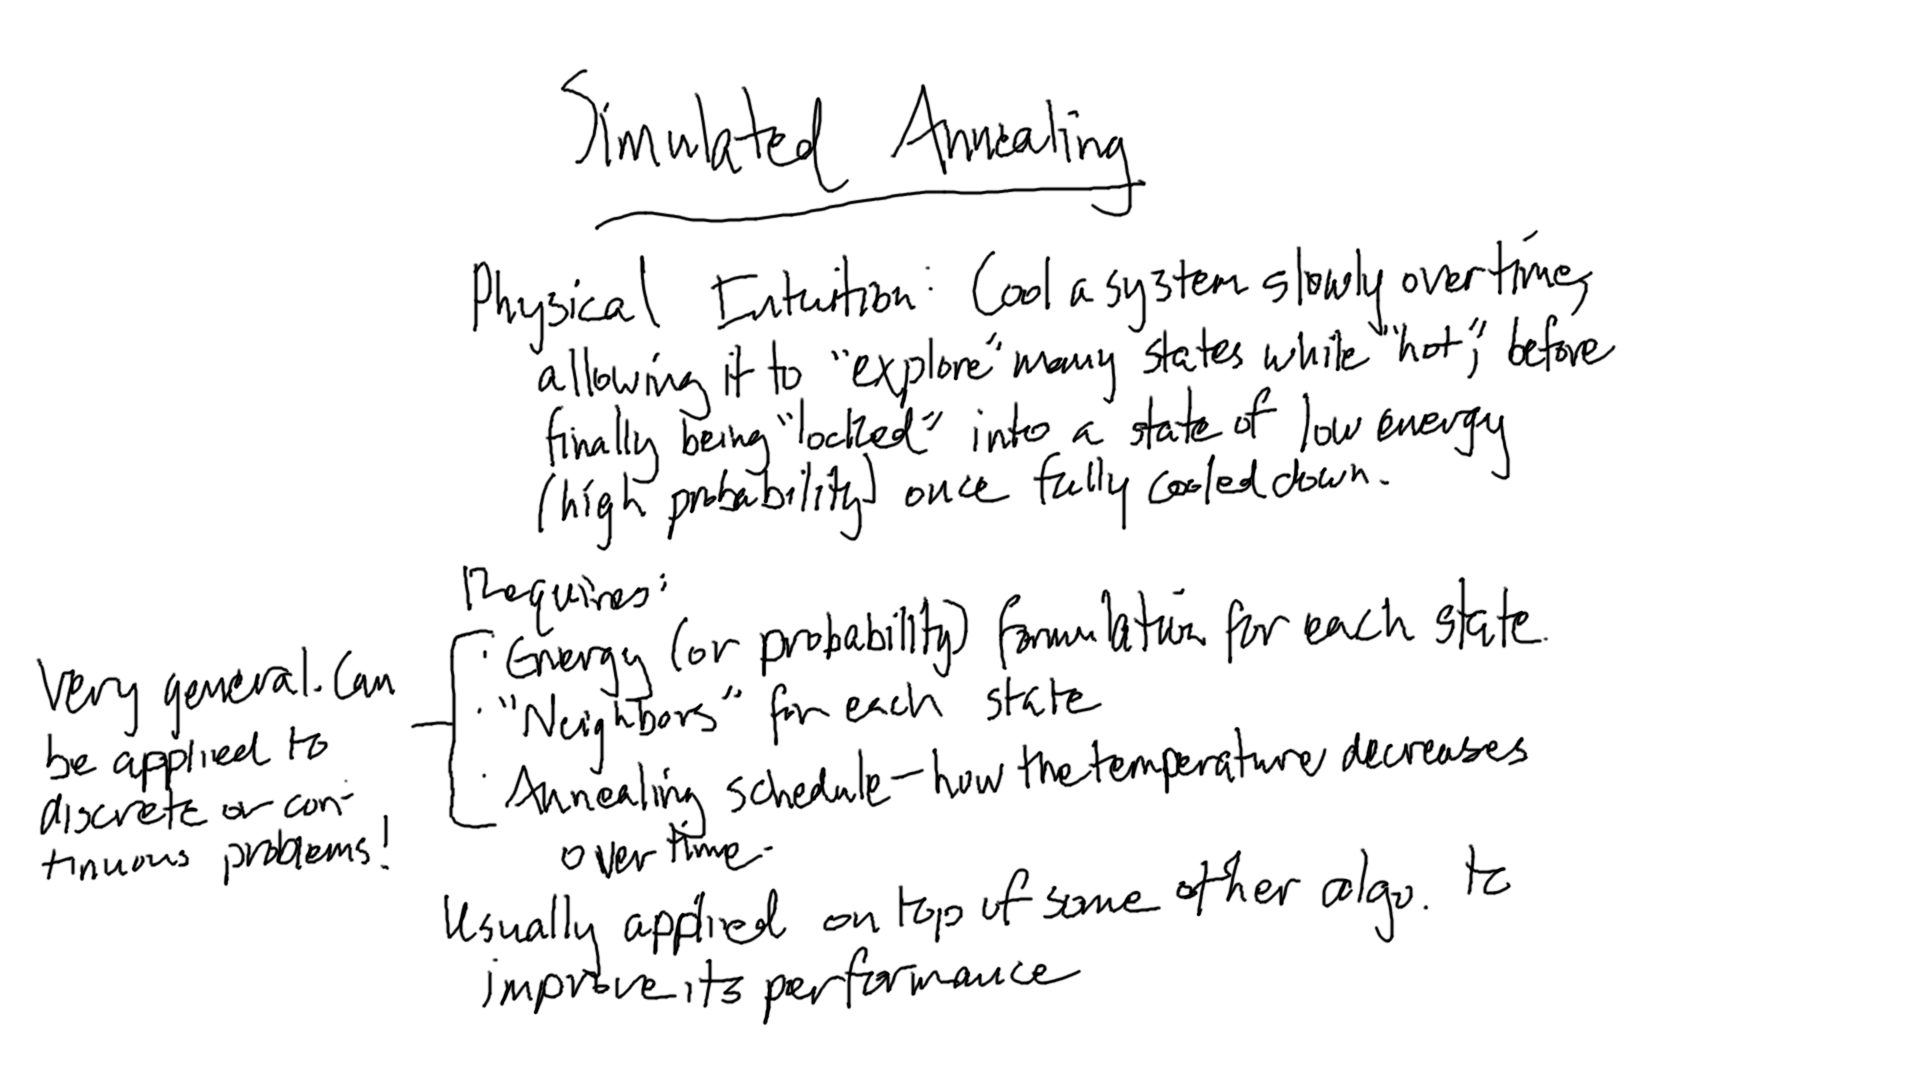 Simulated Annealing
Physical Intuition: Cool a system slowly over time,
allowing it to "explore" many states while "hot", before
finally being "locked" into a state of low energy
(high probability) once fully cooled down.
Requires:
· Energy (or probability) formulation for each state.
· "Neighbors" for each state
· Annealing schedule - how the temperature decreases
over time.
Very general. Can
be applied to
discrete or con-
tinuous problems!
Usually applied on top of some other algo. to
improve its performance